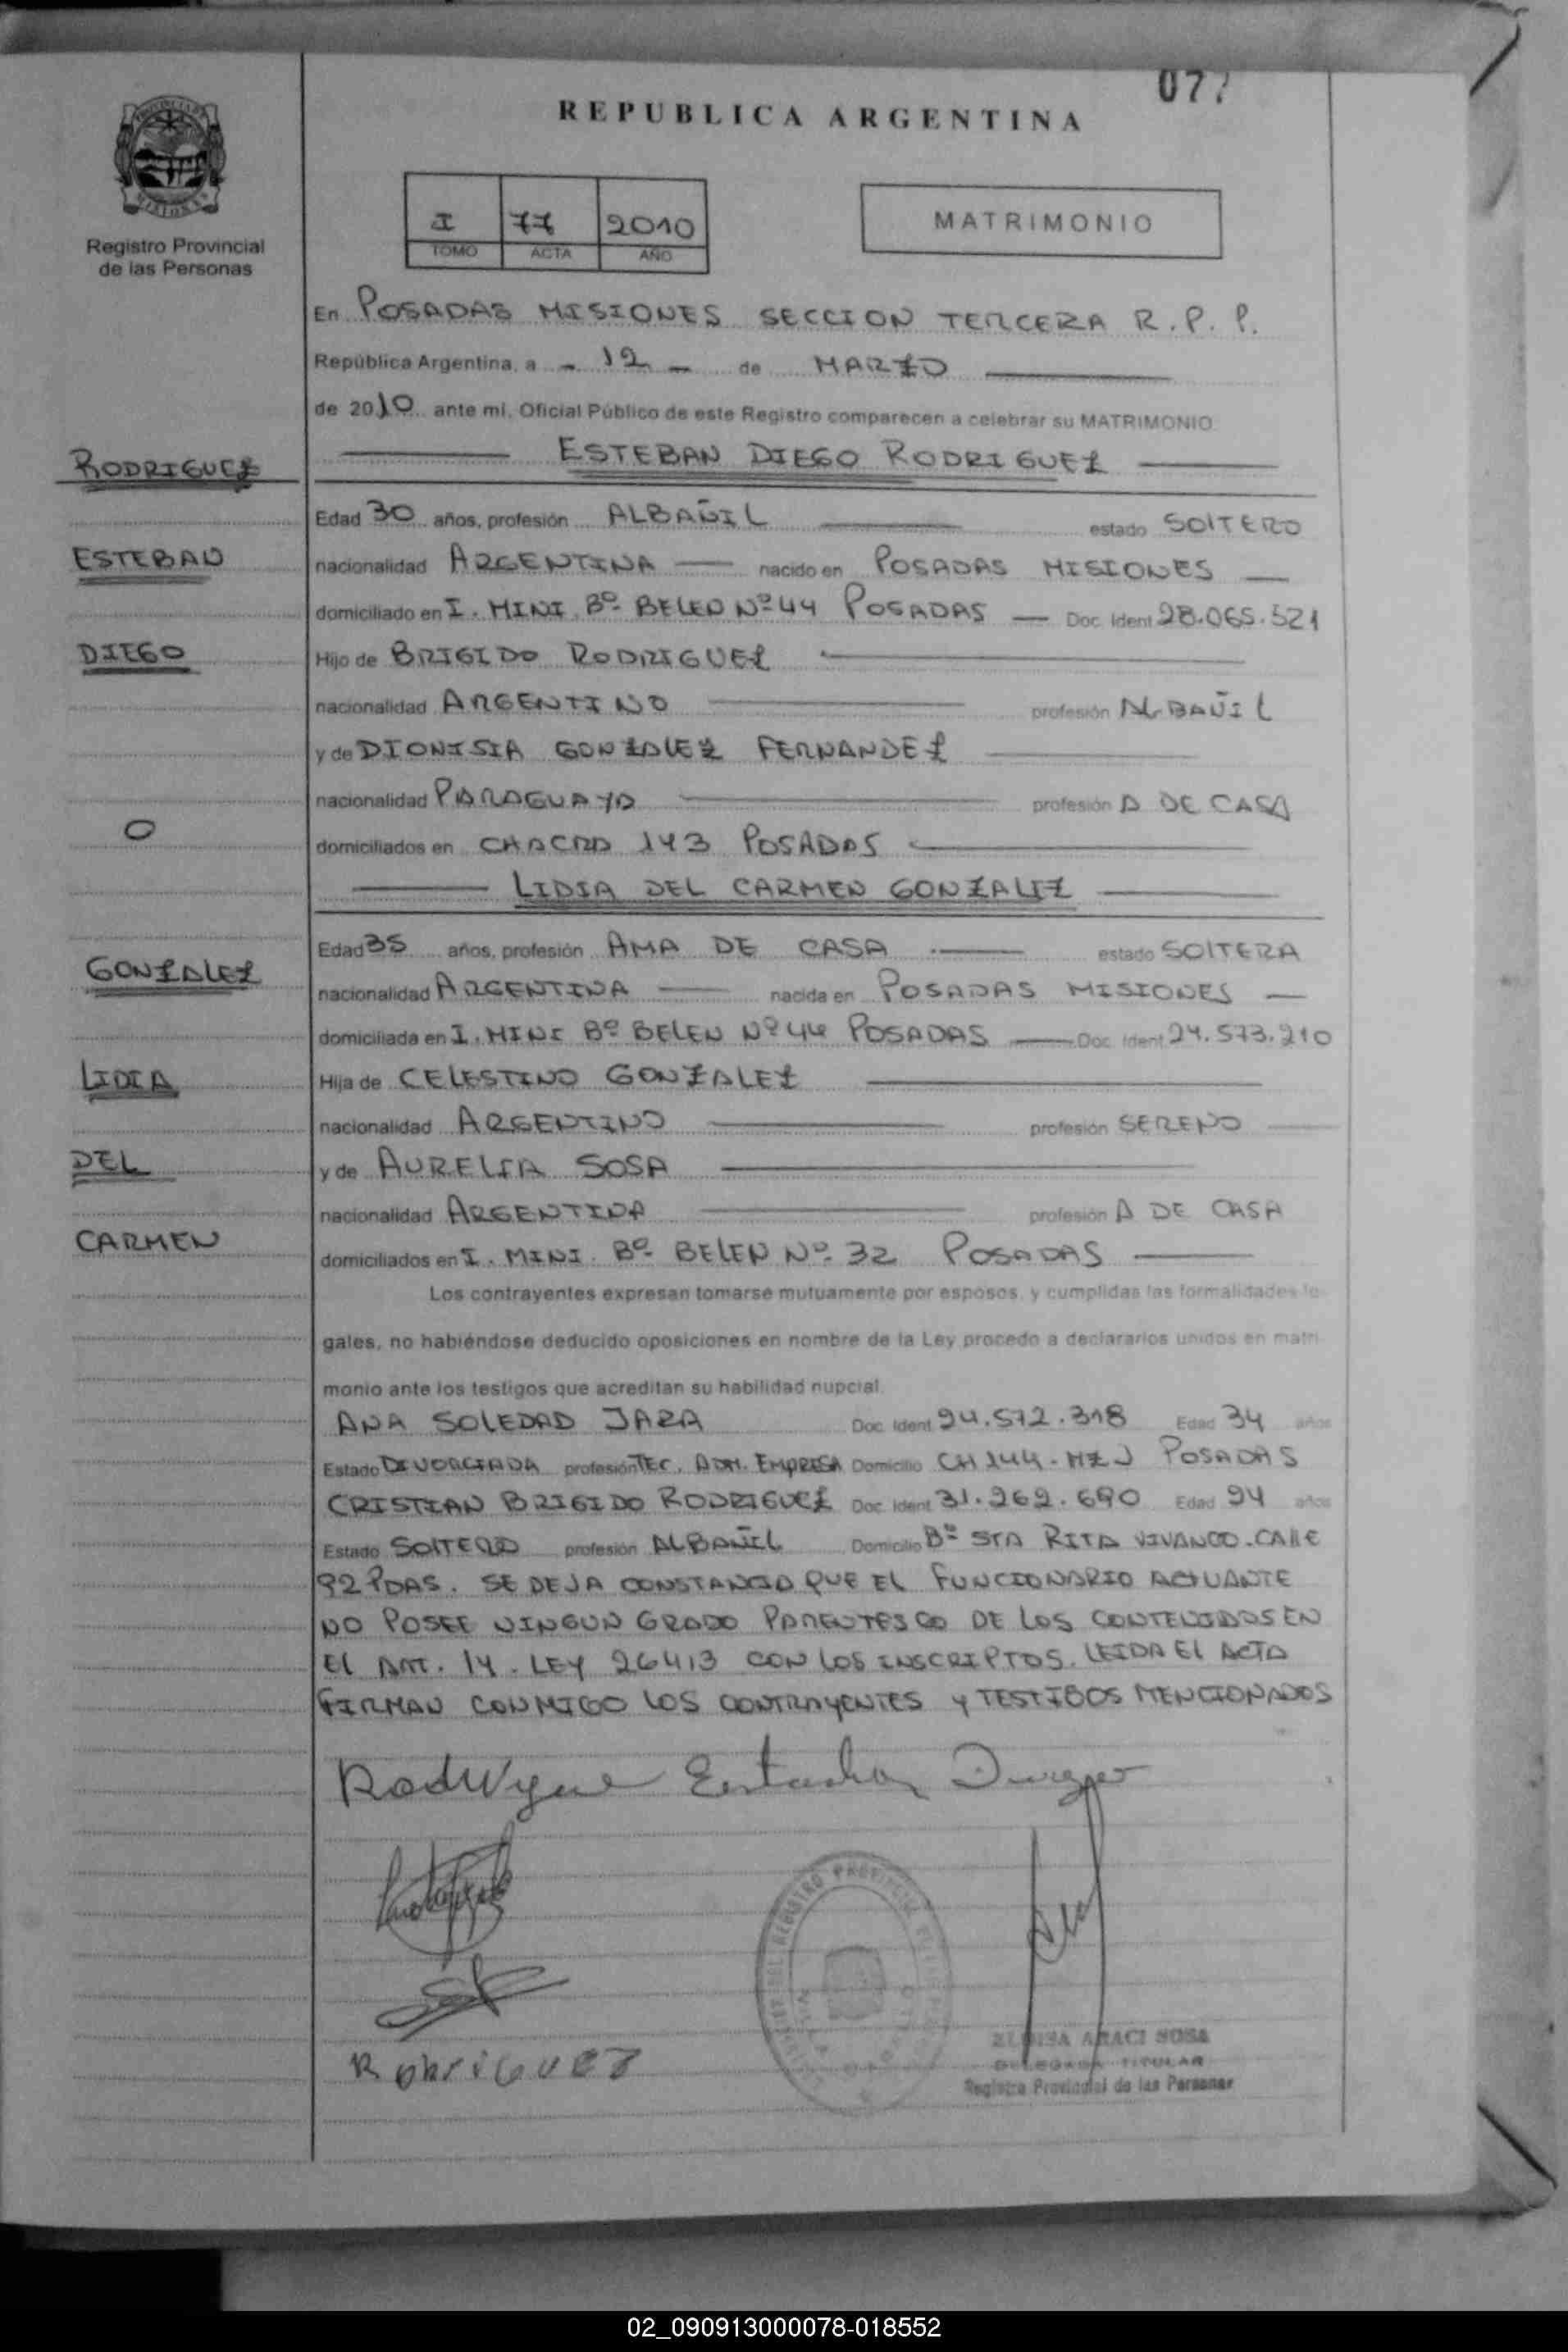 07?
REPUBLICA ARGENTINA
Registro Provincial
de las Personas
I 77 2010
TOMO ACTA AÑO
MATRIMONIO
En POSADAS MISIONES SECCION TERCERA R.P.P.
República Argentina, a - 12 - de MARZO
de 2010 ante mi, Oficial Público de este Registro comparecen a celebrar su MATRIMONIO
RODRIGUEZ
ESTEBAN DIEGO RODRIGUEZ
Edad 30 años, profesión ALBAÑIL estado SOLTERO
ESTEBAN
nacionalidad ARGENTINA nacido en POSADAS MISIONES
domiciliado en I. MINI. Bº BELEN Nº 44 POSADAS Doc. Ident 28.065.521
DIEGO
Hijo de BRIGIDO RODRIGUEZ
nacionalidad ARGENTINO profesión ALBAÑIL
y de DIONISIA GONZALEZ FERNANDEZ
nacionalidad PARAGUAYA profesión A DE CASA
O
domiciliados en CHACRA 143 POSADAS
LIDIA DEL CARMEN GONZALEZ
Edad 35 años, profesión AMA DE CASA estado SOLTERA
GONZALEZ
nacionalidad ARGENTINA nacida en POSADAS MISIONES
domiciliada en I. MINI Bº BELEN Nº 44 POSADAS Doc. Ident 24.573.210
LIDIA
Hija de CELESTINO GONZALEZ
nacionalidad ARGENTINO profesión SERENO
DEL
y de AURELIA SOSA
nacionalidad ARGENTINA profesión A DE CASA
CARMEN
domiciliados en I. MINI. Bº BELEN Nº 32 POSADAS
Los contrayentes expresan tomarse mutuamente por esposos, y cumplidas las formalidades le-
gales, no habiéndose deducido oposiciones en nombre de la Ley procedo a declararlos unidos en matri-
monio ante los testigos que acreditan su habilidad nupcial.
ANA SOLEDAD JARA Doc. Ident 24.572.318 Edad 34 años
Estado DIVORCIADA profesión TEC. ADM. EMPRESA Domicilio CH 144 - MZ J POSADAS
CRISTIAN BRIGIDO RODRIGUEZ Doc. Ident 31.262.690 Edad 24 años
Estado SOLTERO profesión ALBAÑIL Domicilio Bº STA RITA VIVANCO - CALLE
92 PDAS. SE DEJA CONSTANCIA QUE EL FUNCIONARIO ACTUANTE
NO POSEE NINGUN GRADO PARENTESCO DE LOS CONTENIDOS EN
EL ART. 14 - LEY 26413 CON LOS INSCRIPTOS. LEIDA EL ACTA
FIRMAN CONMIGO LOS CONTRAYENTES Y TESTIGOS MENCIONADOS
RODRIGUEZ
ELOISA ARACI SOSA
DELEGADA TITULAR
Registro Provincial de las Personas
02_090913000078-018552